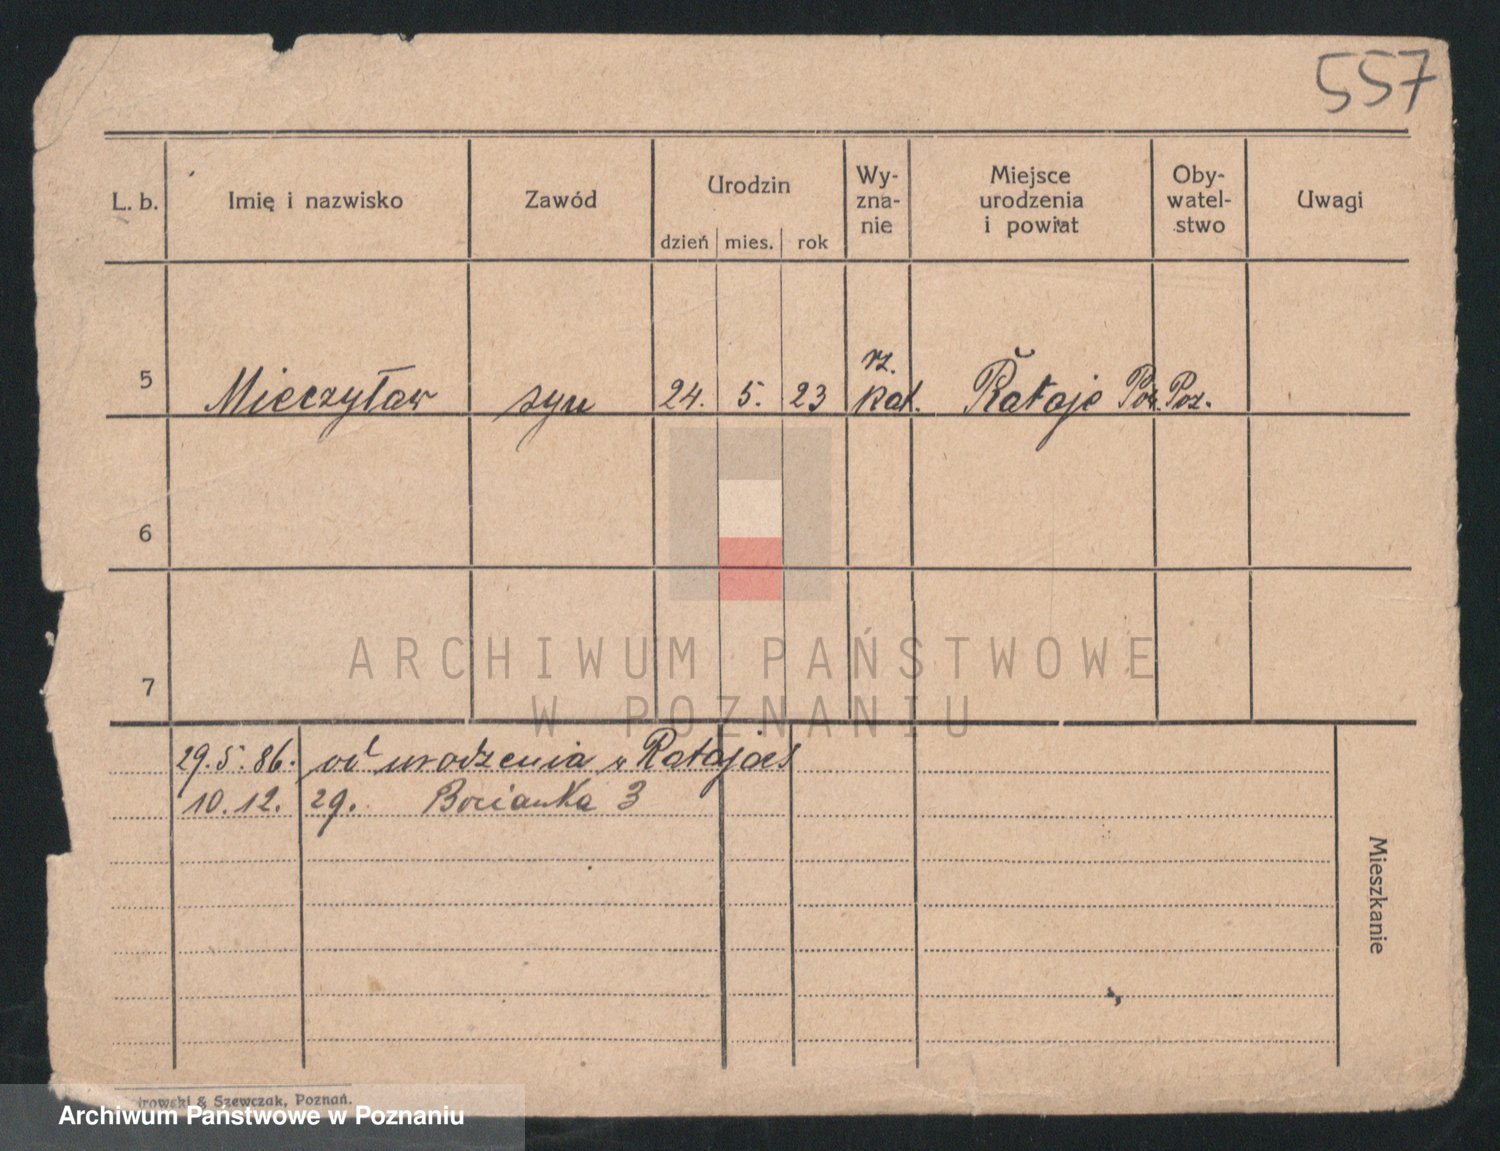 557
L. b. Imię i nazwisko Zawód Urodzin Wy-zna-nie Miejsce urodzenia i powiat Oby-watel-stwo Uwagi
dzień mies. rok
5 Mieczysław syn 24. 5. 23 rz. kat. Rataje Poz. Poz.
6
7
ARCHIWUM PAŃSTWOWE
W POZNANIU
29.5.86. od urodzenia w Ratajach
10.12. 29. Bocianka 3
Mieszkanie
rowski & Szewczak, Poznań.
Archiwum Państwowe w Poznaniu